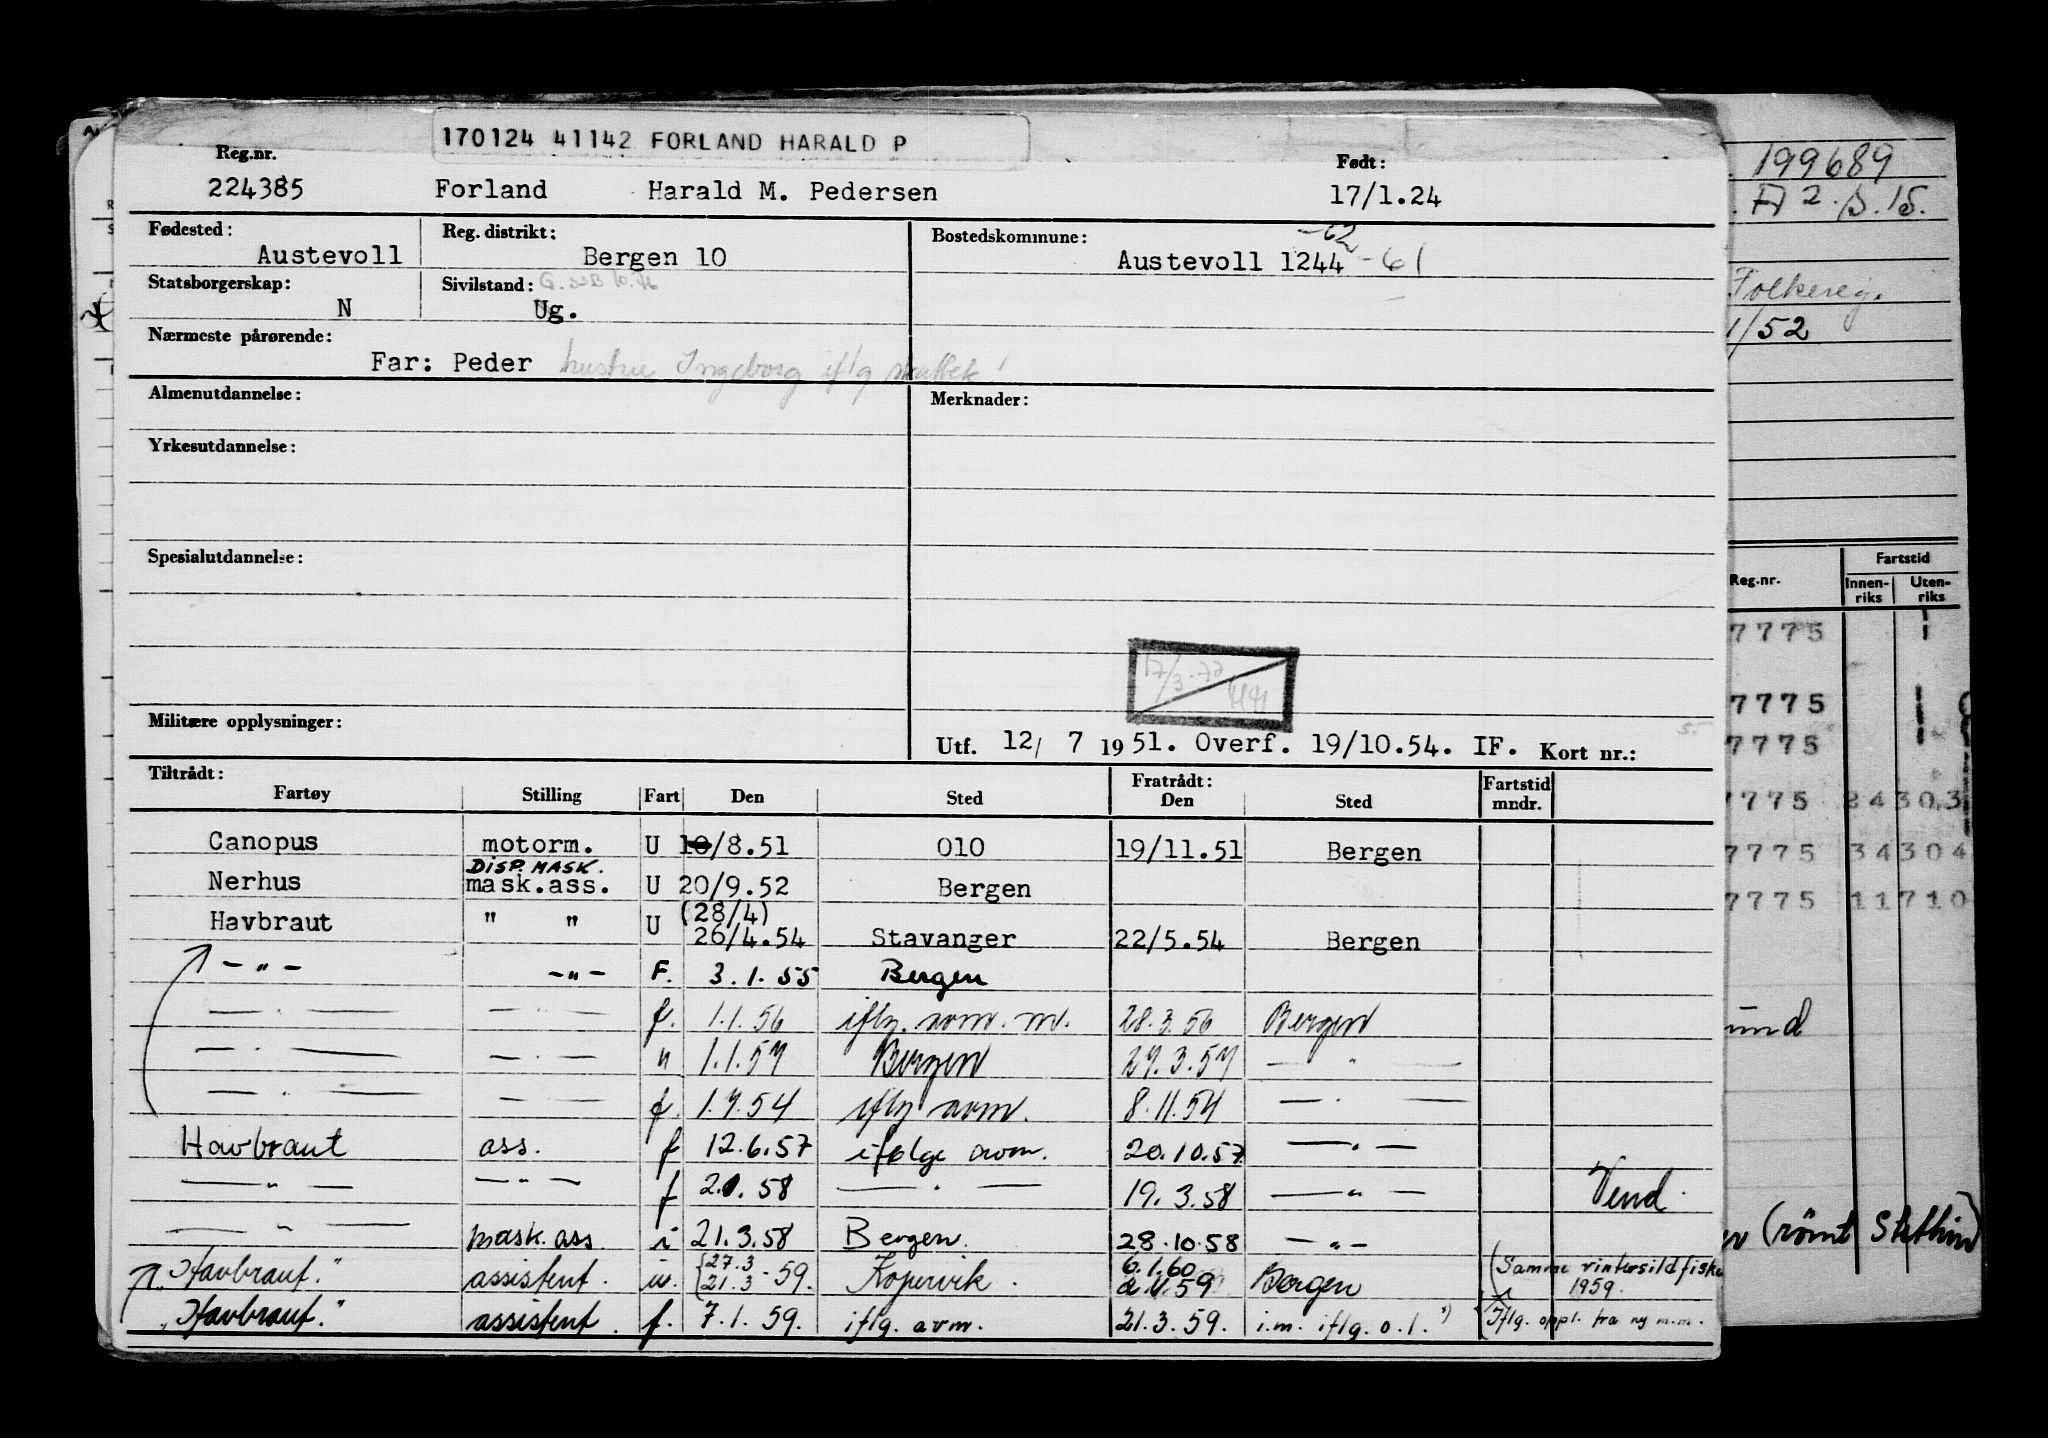 170124 41142 FORLAND HARALD P
Reg.nr. Født:
224385 Forland Harald M. Pedersen 17/1.24
Fødested: Reg. distrikt: Bostedskommune: -62
Austevoll Bergen 10 Austevoll 1244 -61
Statsborgerskap: Sivilstand:
N Ug.
Nærmeste pårørende:
Far: Peder hustru Ingeborg iflg
Almenutdannelse: Merknader:
Yrkesutdannelse:
Spesialutdannelse:
17/3.72
Militære opplysninger:
Utf. 12/ 7 1951. Overf. 19/10.54. IF. Kort nr.: 5.
Tiltrådt: Fratrådt: Fartstid
Fartøy Stilling Fart Den Sted Den Sted mndr.
Canopus motorm. U 10/8.51 010 19/11.51 Bergen
DISP. MASK.
Nerhus mask.ass. U 20/9.52 Bergen
Havbraut " " U (28/4)
26/4.54 Stavanger 22/5.54 Bergen
-"- -"- F. 3.1.55 Bergen
-"- -"- f. 1.1.56 iflg. avm. m. 28.3.56 Bergen
-"- -"- " 1.1.57 Bergen 27.3.57 -"-
-"- -"- f. 1.7.54 iflg avm. 8.11.54 -"-
Havbraut ass. f 12.6.57 ifølge avm. 20.10.57 -"-
-"- -"- f 2.1.58 -"- 19.3.58 -"- Vend.
-"- mask.ass i 21.3.58 Bergen. 28.10.58 -"-
27.3 6.1.60 (Samme vintersildfiske
"Havbraut." assistent. 21.3 -59. Kopervik. 59 Bergen 1959.
"Havbraut." assistent. f. 7.1.59. iflg. avm. 21.3.59. i.m. iflg. o.l. Iflg. oppl. fra ny m.m.
199689
A 2. B. 15.
Folkereg.
1/52
Reg.nr. Fartstid
Innen-riks Uten-riks
7775
7775
7775
7775 24303
7775 34304
7775 11710
und
(rømt Stettin)